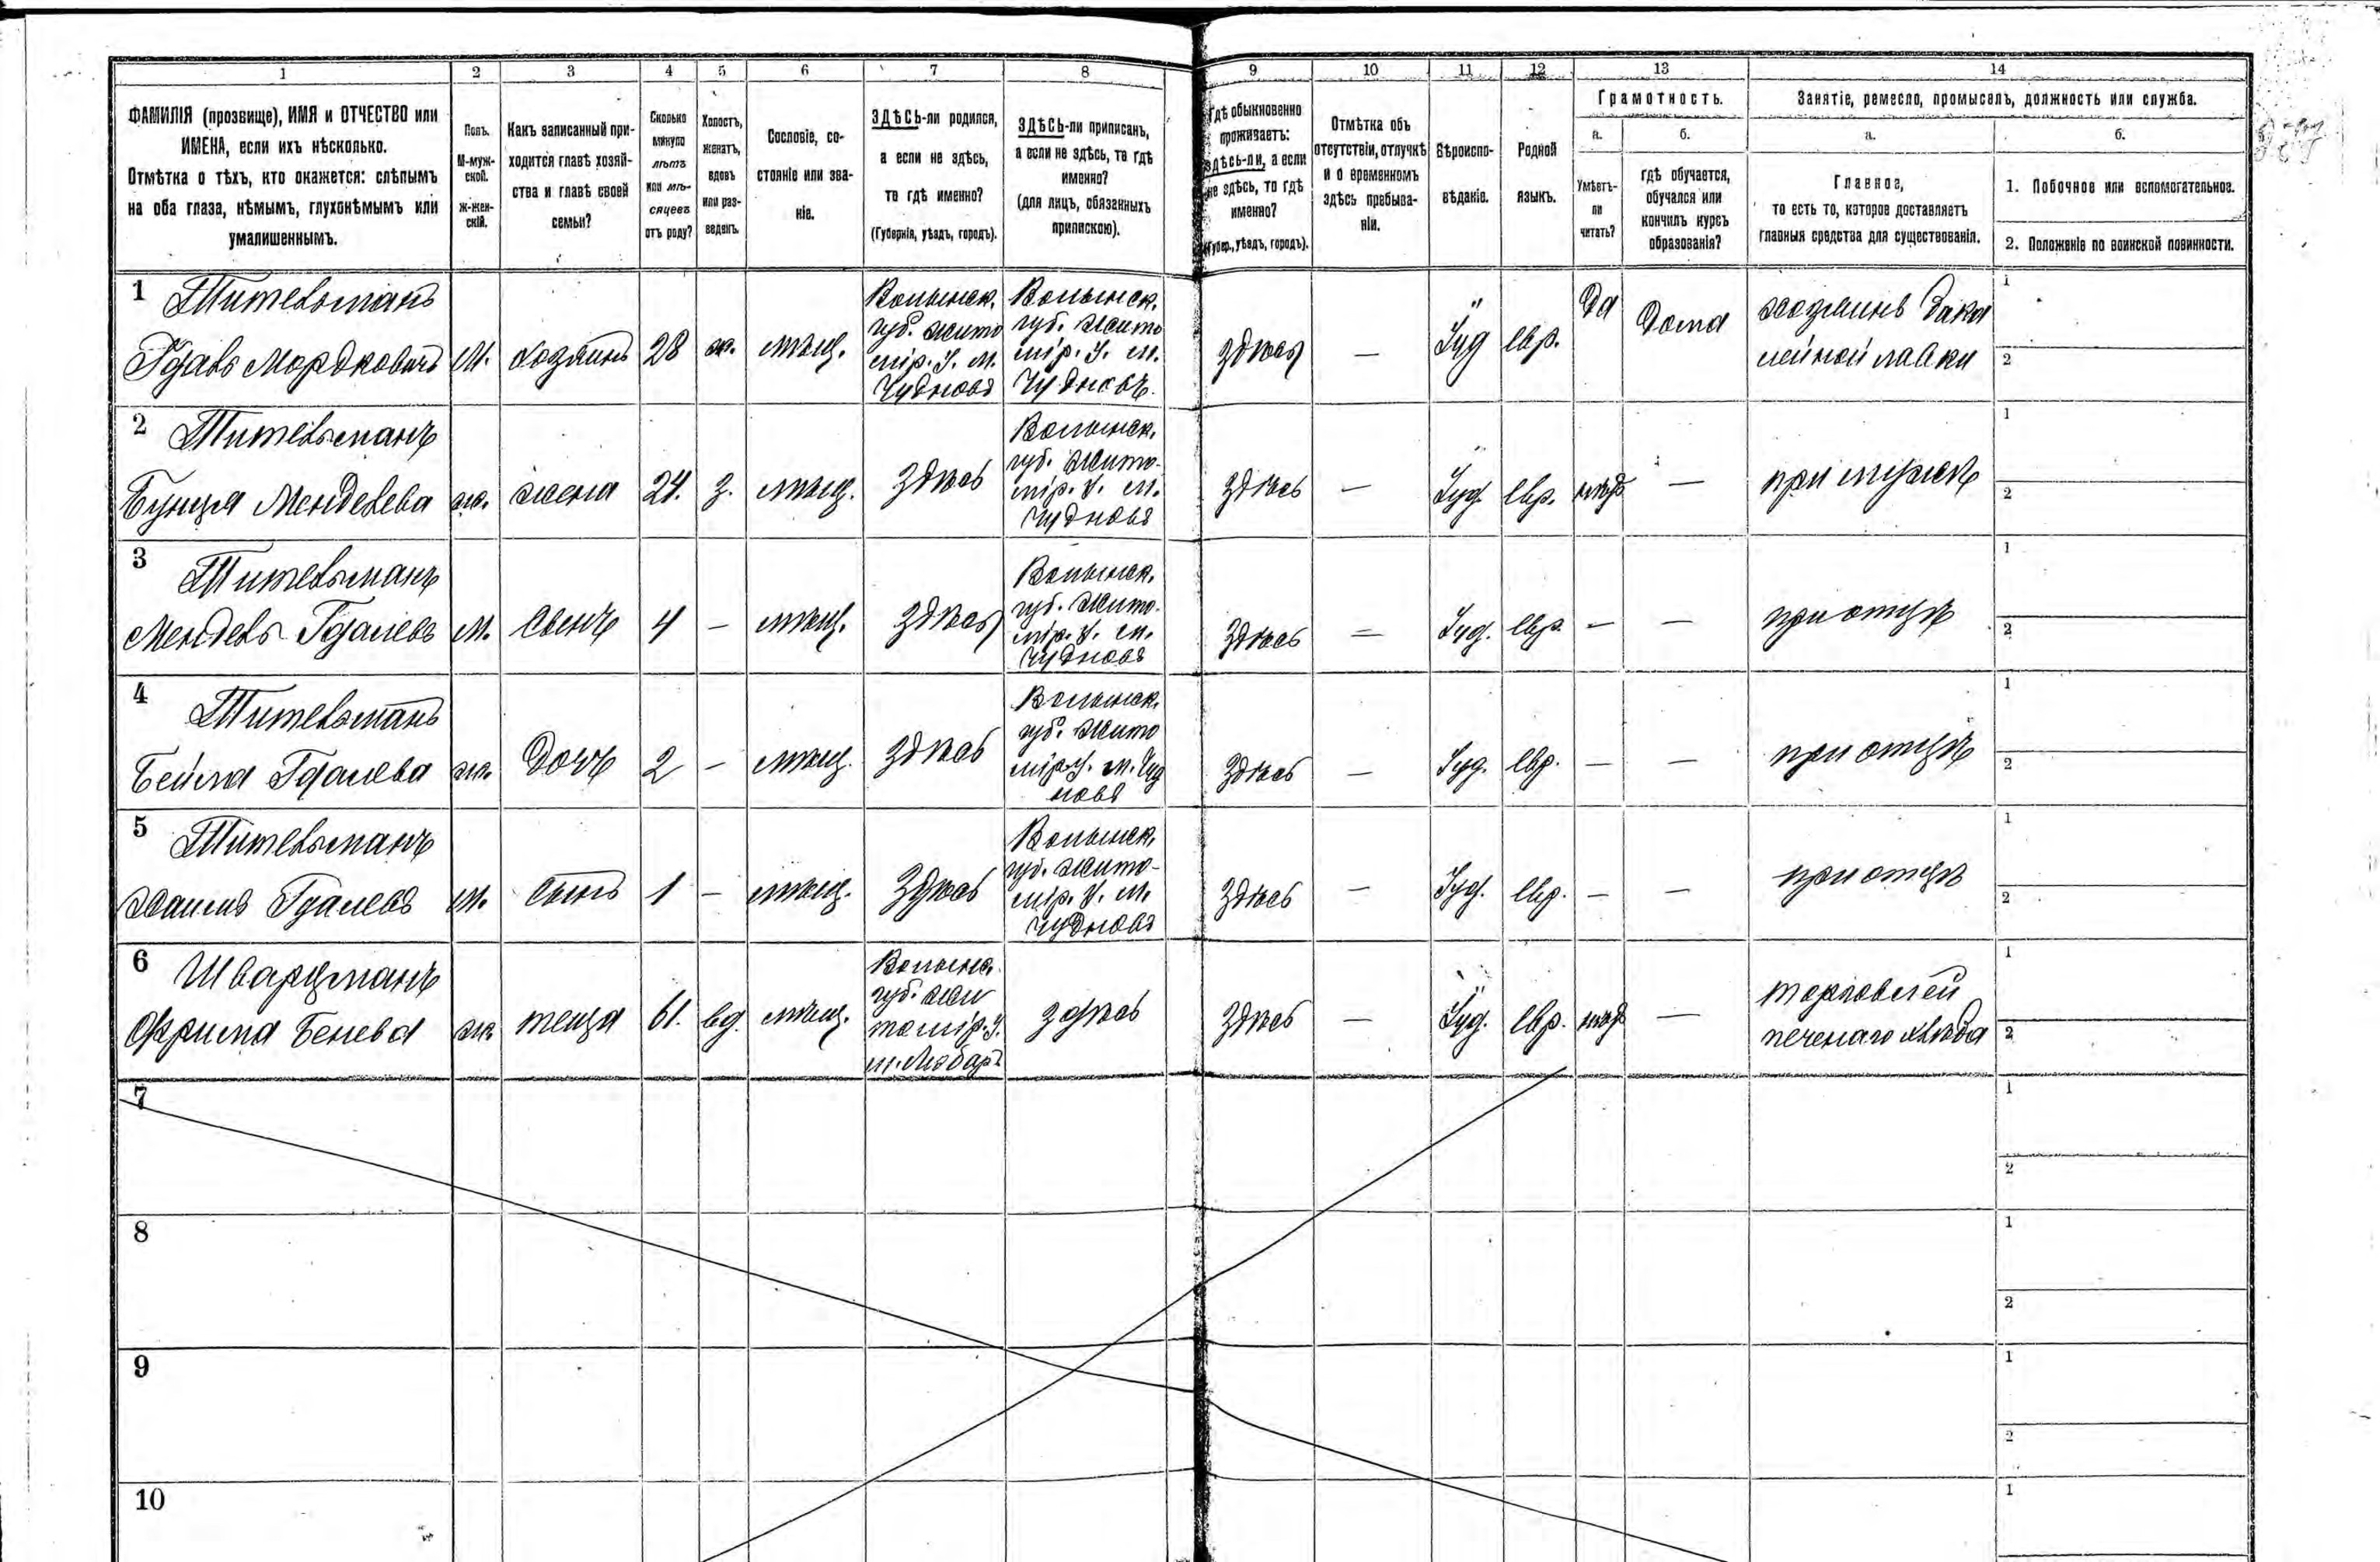 1 2 3 4 5 6 7 8 9 10 11 12 13 14
ФАМИЛІЯ (прозвище), ИМЯ и ОТЧЕСТВО или
ИМЕНА, если ихъ нѣсколько.
Отмѣтка о тѣхъ, кто окажется: слѣпымъ
на оба глаза, нѣмымъ, глухонѣмымъ или
умалишеннымъ.
Полъ.
М-муж-
ской.
Ж-жен-
скій.
Какъ записанный при-
ходится главѣ хозяй-
ства и главѣ своей
семьи?
Сколько
минуло
лѣтъ
или мѣ-
сяцевъ
отъ роду?
Холостъ,
женатъ,
вдовъ
или раз-
веденъ.
Сословіе, со-
стояніе или зва-
ніе.
ЗДѢСЬ-ли родился,
а если не здѣсь,
то гдѣ именно?
(Губернія, уѣздъ, городъ).
ЗДѢСЬ-ли приписанъ,
а если не здѣсь, то гдѣ
именно?
(для лицъ, обязанныхъ
припискою).
Гдѣ обыкновенно
проживаетъ:
здѣсь-ли, а если
не здѣсь, то гдѣ
именно?
(Губер., уѣздъ, городъ).
Отмѣтка объ
отсутствіи, отлучкѣ
и о временномъ
здѣсь пребыва-
ніи.
Вѣроиспо-
вѣданіе.
Родной
языкъ.
Грамотность.
а.
Умѣетъ-
ли
читать?
б.
гдѣ обучается,
обучался или
кончилъ курсъ
образованія?
Занятіе, ремесло, промыселъ, должность или служба.
а.
Главное,
то есть то, которое доставляетъ
главныя средства для существованія.
б.
1. Побочное или вспомогательное.
2. Положеніе по воинской повинности.
1 Тительманъ
Гдаль Мордковичъ
М.
хозяинъ
28
ж.
мѣщ.
Волынск.
губ. Жито
мір. У. м.
Чудновъ
Волынск.
губ. Жито
мір. У. м.
Чудновъ.
здѣсь
—
Іуд
евр.
Да
Дома
хозяинъ бака
лейной лавки
1
2
2 Тительманъ
Бунця Менделева
ж.
жена
24.
з.
мѣщ.
здѣсь
Волынск.
губ. Жито-
мір. У. м.
Чудновъ
здѣсь
—
Іуд.
евр.
нѣтъ
—
при мужѣ
1
2
3 Тительманъ
Мендель Гдалевъ
М.
сынъ
4
—
мѣщ.
здѣсь
Волынск.
губ. Жито-
мір. У. м.
Чудновъ
здѣсь
—
Іуд.
евр.
—
—
при отцѣ
1
2
4 Тительманъ
Бейла Гдалева
ж.
дочь
2
—
мѣщ.
здѣсь
Волынск.
губ. Жито
мір. У. м. Чуд
новъ
здѣсь
—
Іуд.
евр.
—
—
при отцѣ
1
2
5 Тительманъ
Гдалевъ
М.
сынъ
1
—
мѣщ.
здѣсь
Волынск.
губ. Жито-
мір. У. м.
Чудновъ
здѣсь
—
Іуд.
евр.
—
—
при отцѣ
1
2
6 Шварцманъ
Фрима Бенева
ж.
теща
61.
вд.
мѣщ.
Волынс.
губ. Жи
томір. У.
м. Любаръ
здѣсь
здѣсь
—
Іуд.
евр.
нѣтъ
—
торговлей
печенаго хлѣба
1
2
7
1
2
8
1
2
9
1
2
10
1